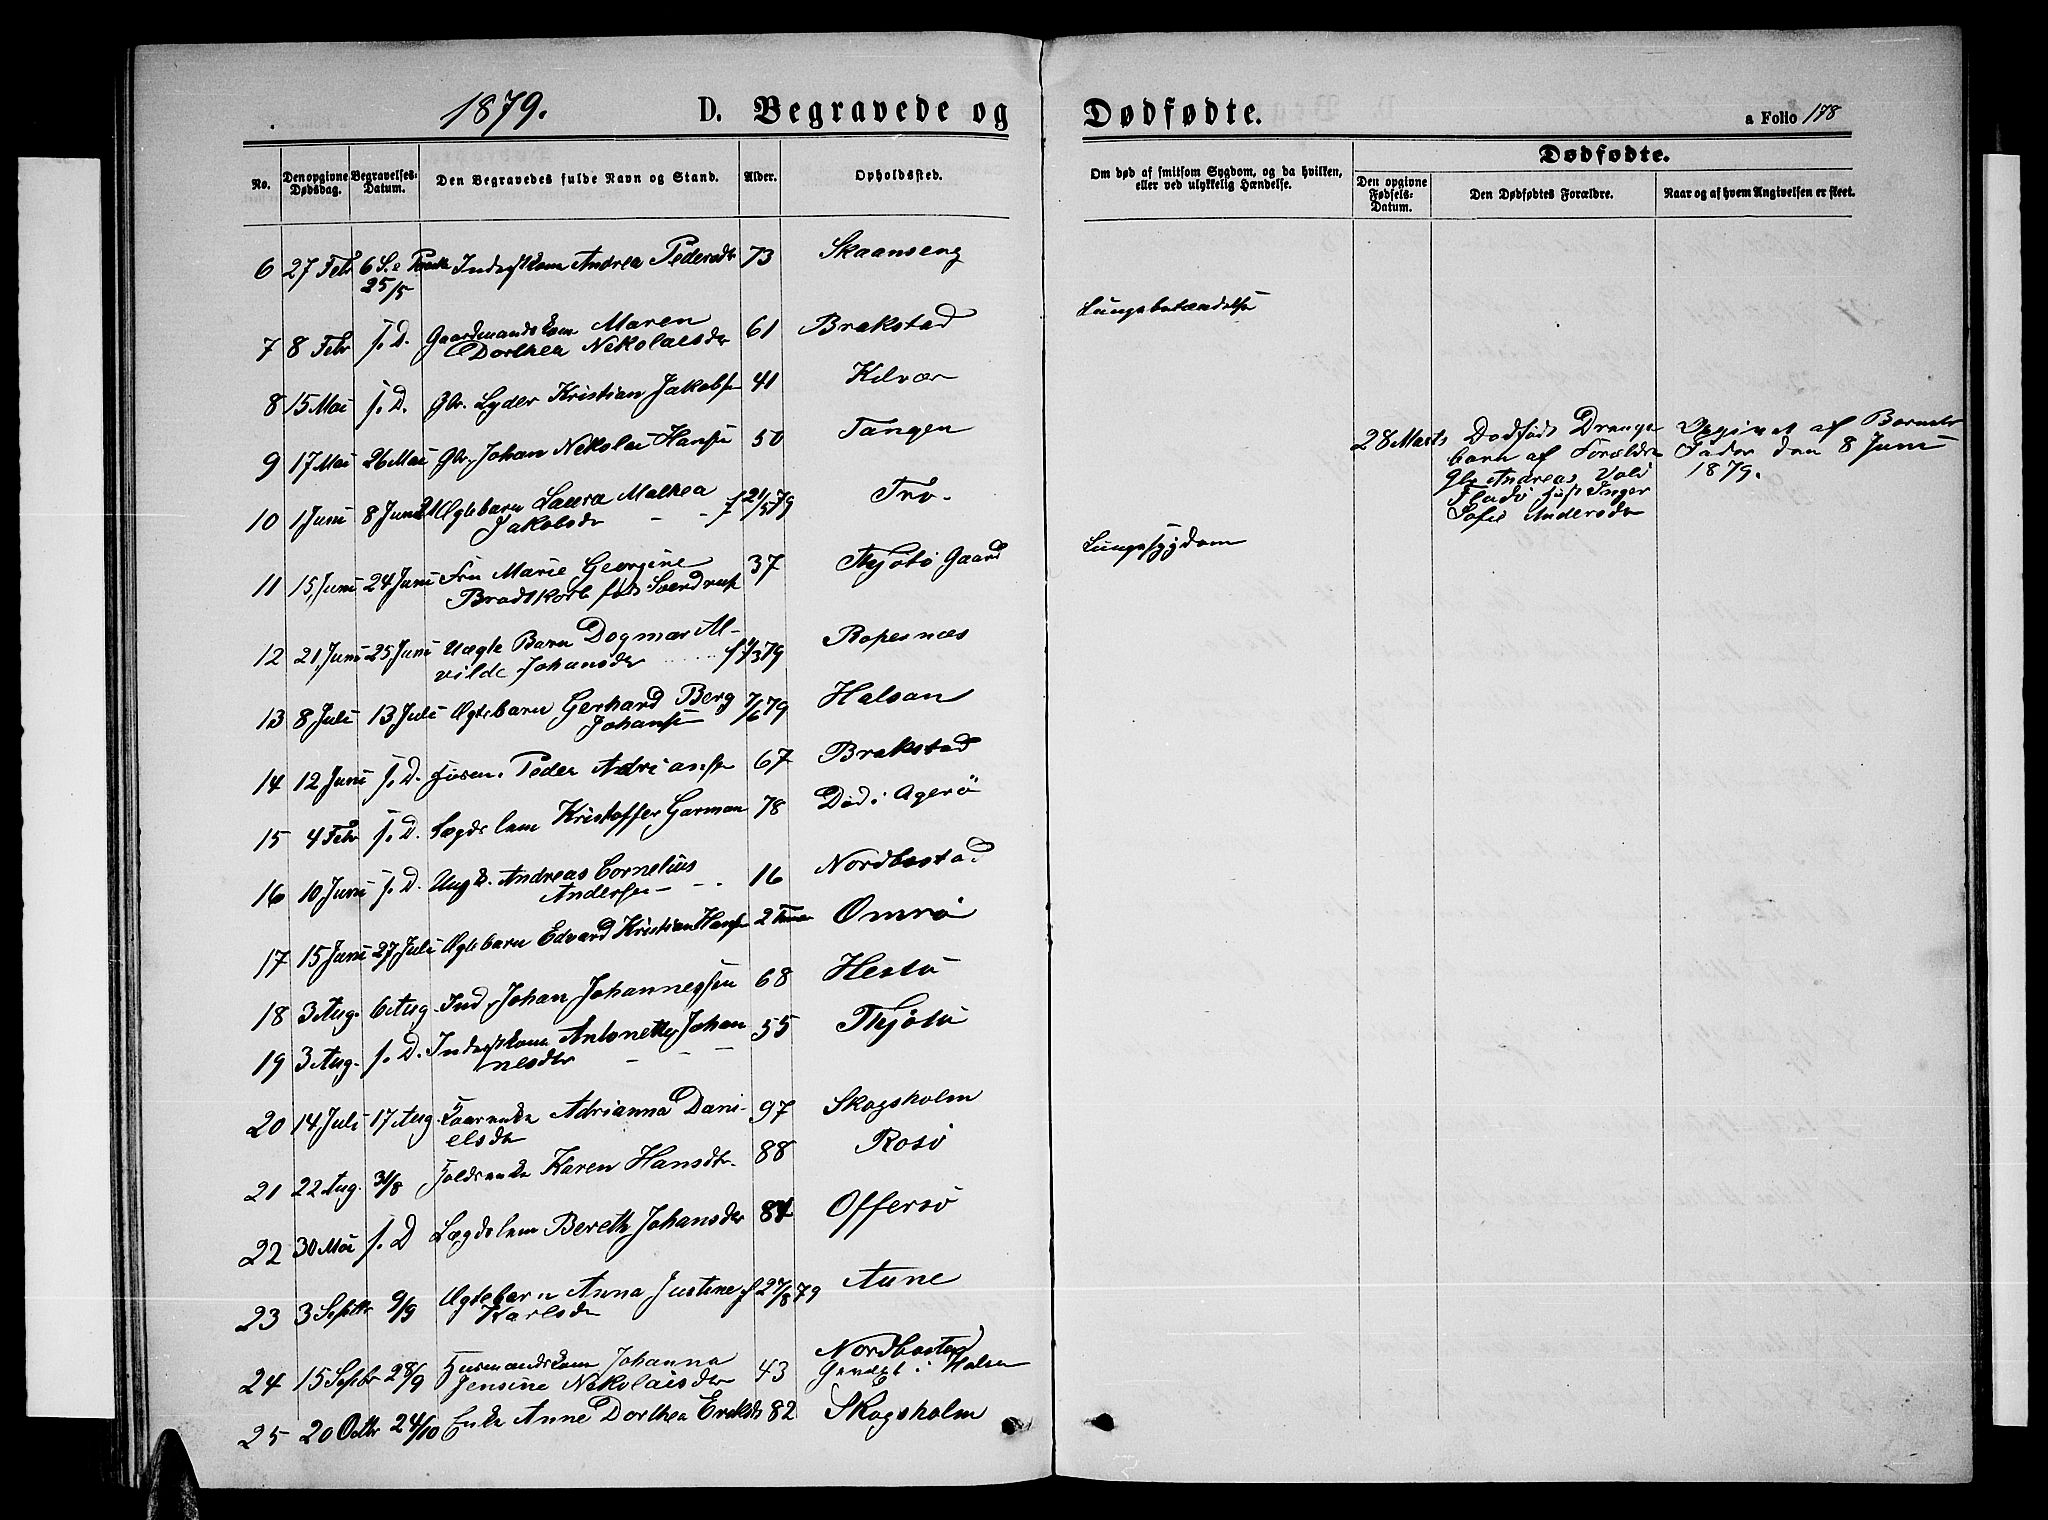 1879.
D. Begravede og Dødfødte.
a Folio 178
No.
Den opgivne Dødsdag.
Begravelses-Datum.
Den Begravedes fulde Navn og Stand.
Alder.
Opholdssted.
Om død af smitsom Sygdom, og da hvilken,
eller ved ulykkelig Hændelse.
Dødfødte.
Den opgivne Fødsels-Datum.
Den Dødfødtes Forældre.
Naar og af hvem Angivelsen er skeet.
6 27 Febr 6 S. e Paaske Inderstkone Andrea Pedersdtr 73 Skaanseng
25/5
Lungebetændelse
7 8 Febr s. D. Gaardmandskone Maren 61 Brakstad
Dorthea Nekolaisdtr
8 15 Mai s. D. Gbr. Lyder Kristian Jakobsen 41 Kilvær
9 17 Mai 26 Mai Gbr. Johan Nekolai Hansen 50 Tangen
28 Marts Dødfødt Drenge
barn af Forældre
Gbr Andreas Vold
Fladø Inger
Sofie Andersdtr
Opgivet af Barnets
Fader den 8 Juni
1879.
10 1 Juni 8 Juni Ægtebarn Laura Malhea f 21/5 79 Tro.
Jakobsdtr
11 15 Juni 24 Juni Fru Marie Georgine 37 Thjøtø Gaard Lungesygdom
Brodtkorb født Sverdrup
12 21 Juni 25 Juni Uægte Barn Dogmar Al- f 3 79 Ropesnæs
vilde Johansdtr
13 8 Juli 13 Juli Ægtebarn Gerhard Berg 7/6 79 Halsan
Johansen
14 12 Juni s. D. Peder Adriansen 67 Brakstad
15 4 Febr s. D. Lægdslem Kristoffer Garman 78 Død i Agerö
16 10 Juni s. D Ungk. Andreas Cornelius 16 Nordbostad
Andersen
17 15 Juni 27 Juli Ægtebarn Edvard Kristian Hansen 2 Timer Omrö
18 3 Aug. 6 Aug Ind. Johan Johannessen 68 Hestö
19 3 Aug. s. D. Inderstkone Antonette Johan 55 Thjøtö
nesdtr
20 14 Juli 17 Aug Kaarenke Adrianna Dani- 97 Skogsholm
elsdtr
21 22 Aug. 31/8 Karen Hansdtr. 88 Rosö
22 30 Mai s. D Lægdslem Bereth Johansdtr 84 Offersö
23 3 Septbr 9/9 Ægtebarn Anna Justine f 27/8 79 Aune
Karlsdtr
24 15 Septbr 28/9 Husmandskone Johanna 43 Nordbostad
Jensine Nekolaisdtr i Halsan
25 20 Octbr 24/10 Enke Anne Dorthea Eriksdtr 82 Skogsholm